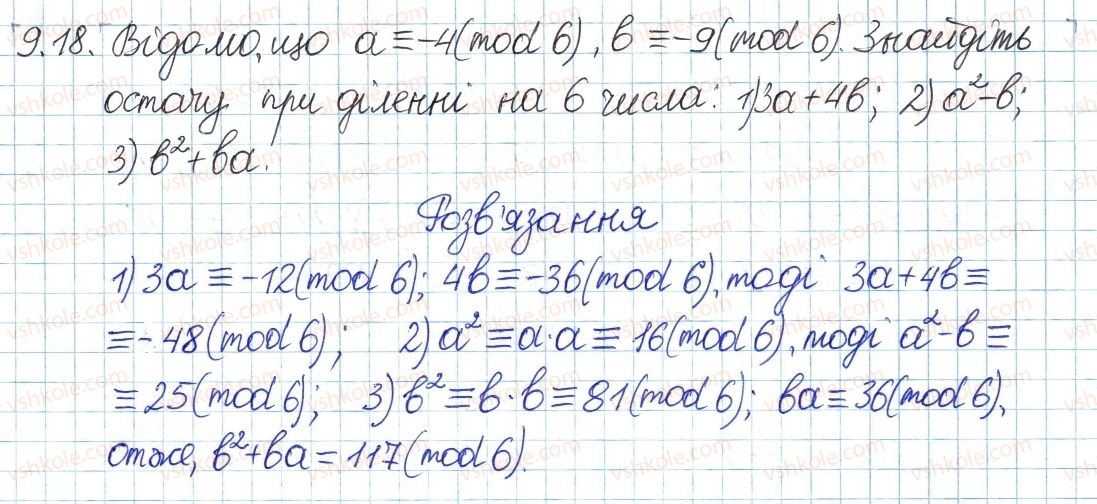 9.18. Відомо, що a ≡ -4(mod 6), b ≡ -9(mod 6). Знайдіть
остачу при діленні на 6 числа: 1) 3a + 4b; 2) a² - b;
3) b² + ba.
Розв'язання
1) 3a ≡ -12(mod 6); 4b ≡ -36(mod 6), тоді 3a + 4b ≡
≡ -48(mod 6); 2) a² ≡ a·a ≡ 16(mod 6), тоді a² - b ≡
≡ 25(mod 6); 3) b² ≡ b·b ≡ 81(mod 6); ba ≡ 36(mod 6),
отже, b² + ba = 117(mod 6).